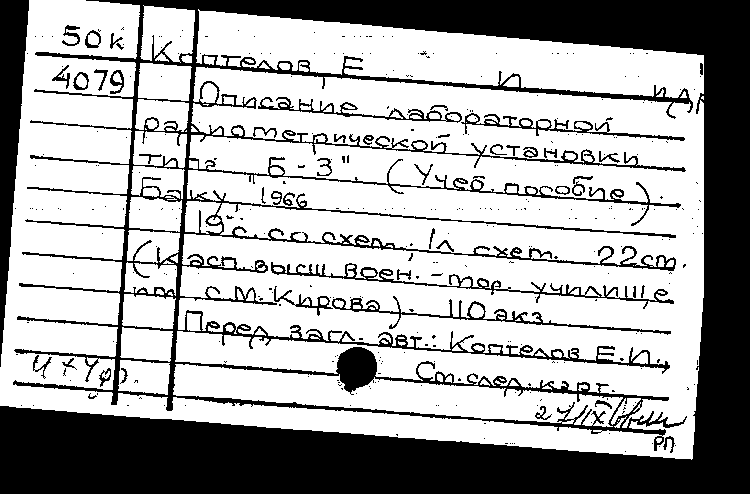 50к Коптелов, Е И и др
4079 Описание лабораторной
радиометрической установки
типа „Б-3". (Учеб. пособие).
Баку, 1966
19 с. со схем.; 1л схем. 22см.
(Касп. высш. воен.-мор. училище
им С.М. Кирова). 110 экз.
Перед загл. авт.: Коптелов Е.И.,
См. след. карт.
РП